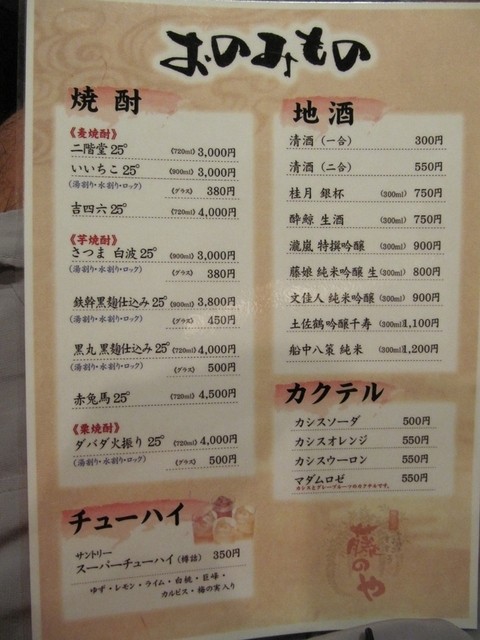 おのみもの
焼酎
《麦焼酎》
二階堂 25° (720ml) 3,000円
いいちこ 25° (900ml) 3,000円
(湯割り・水割り・ロック) (グラス) 380円
吉四六 25° (720ml) 4,000円
《芋焼酎》
さつま 白波 25° (900ml) 3,000円
(湯割り・水割り・ロック) (グラス) 380円
鉄幹黒麹仕込み 25° (900ml) 3,800円
(湯割り・水割り・ロック) (グラス) 450円
黒丸 黒麹仕込み 25° (720ml) 4,000円
(湯割り・水割り・ロック) (グラス) 500円
赤兎馬 25° (720ml) 4,500円
《栗焼酎》
ダバダ火振り 25° (720ml) 4,000円
(湯割り・水割り・ロック) (グラス) 500円
チューハイ
サントリー
スーパーチューハイ (樽詰) 350円
ゆず・レモン・ライム・白桃・巨峰・
カルピス・梅の実入り
地酒
清酒 (一合) 300円
清酒 (二合) 550円
桂月 銀杯 (300ml) 750円
酔鯨 生酒 (300ml) 750円
瀧嵐 特撰吟醸 (300ml) 900円
藤娘 純米吟醸 生 (300ml) 800円
文佳人 純米吟醸 (300ml) 900円
土佐鶴吟醸千寿 (300ml) 1,100円
船中八策 純米 (300ml) 1,200円
カクテル
カシスソーダ 500円
カシスオレンジ 550円
カシスウーロン 550円
マダムロゼ 550円
カシスとグレープフルーツのカクテルです。
藤のや